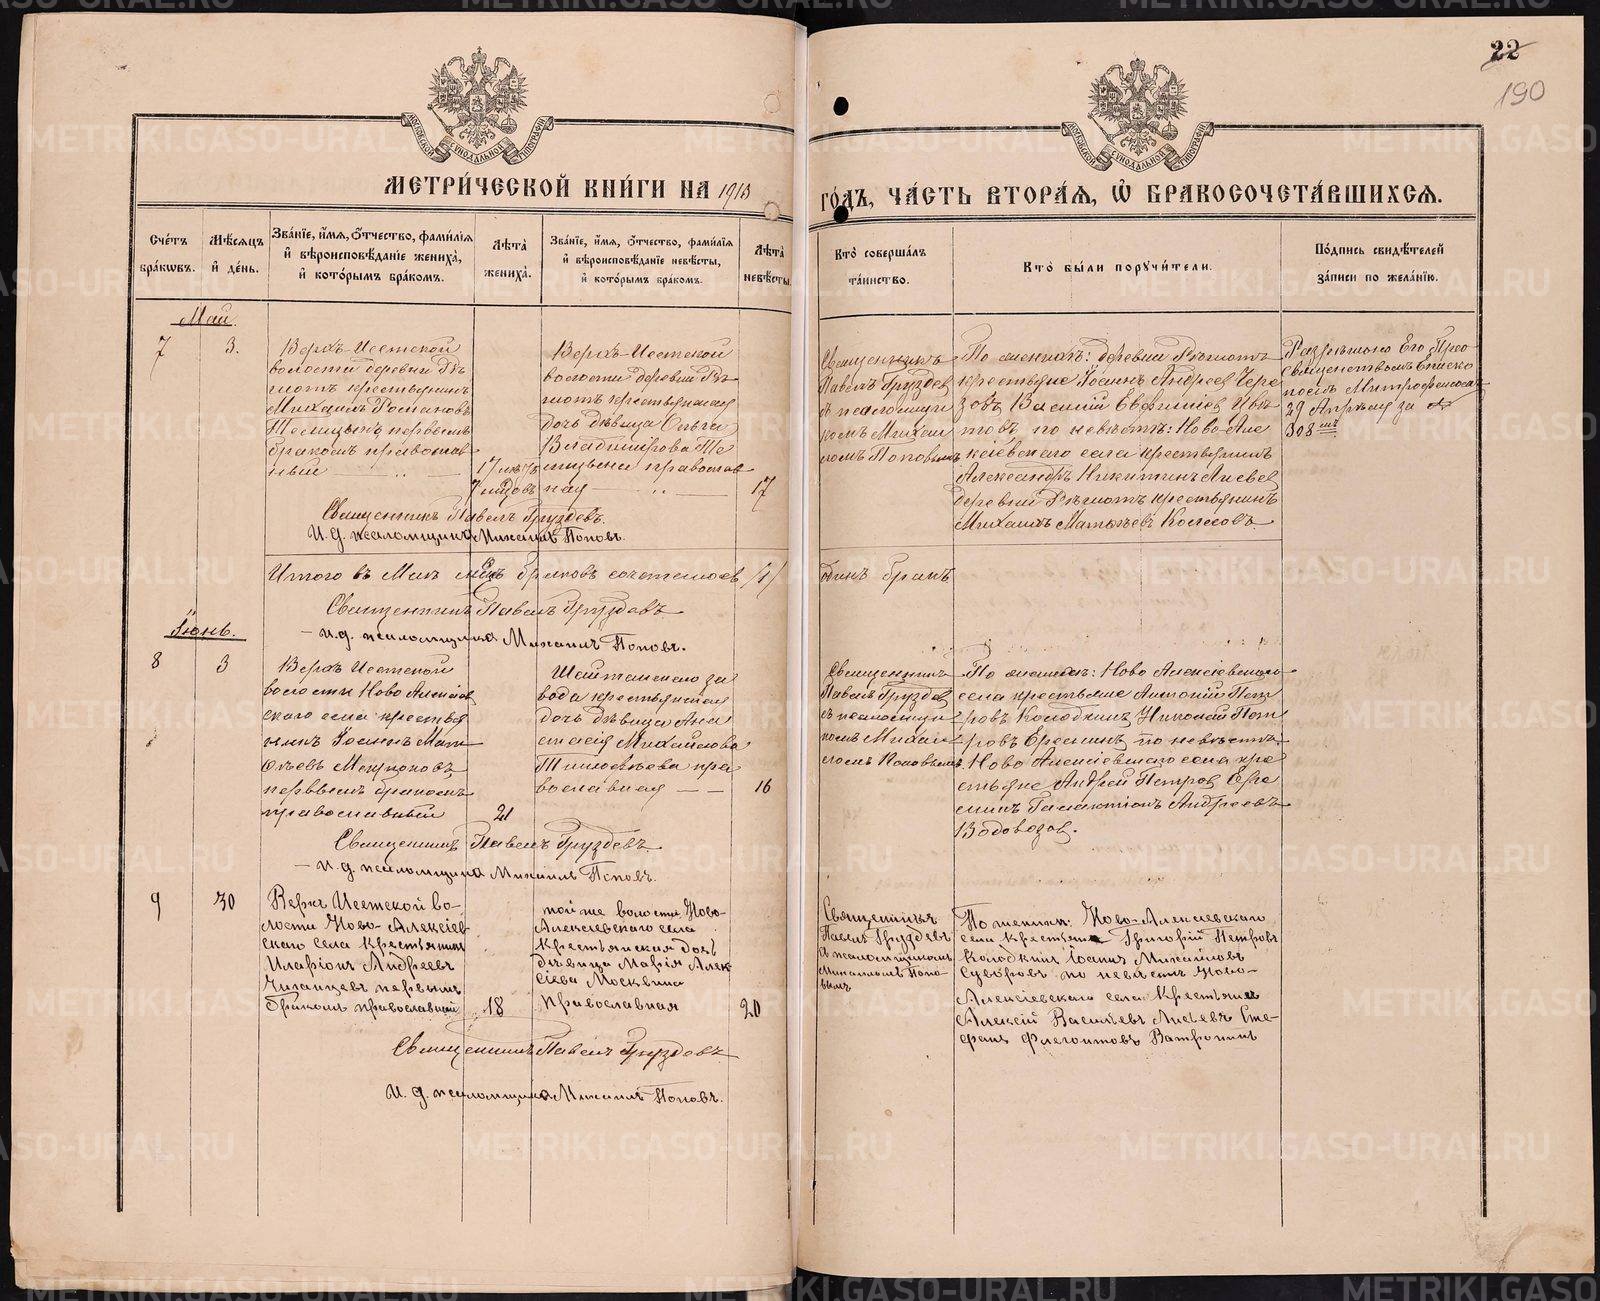 22
190
МОСКОВСКОЙ СѴНОДАЛЬНОЙ ТИПОГРАФІИ
МОСКОВСКОЙ СѴНОДАЛЬНОЙ ТИПОГРАФІИ
МЕТРИ́ЧЕСКОЙ КНИ́ГИ НА 1913 ГО́ДЪ, ЧА́СТЬ ВТОРА́Я, Ѡ БРАКОСОЧЕТА́ВШИХСЯ.
Сче́тъ бра́ковъ.
Мѣ́сяцъ и́ де́нь.
Зва́ніе, и́мя, ѻ́тчество, фами́лія
и́ вѣроисповѣ́даніе жениха̀,
и́ кото́рымъ бра́комъ.
Лѣ́та жениха̀.
Зва́ніе, и́мя, ѻ́тчество, фами́лія
и́ вѣроисповѣ́даніе невѣ́сты,
и́ кото́рымъ бра́комъ.
Лѣ́та невѣ́сты.
Кто̀ соверша́лъ та́инство.
Кто̀ бы́ли поручи́тели.
По́дпись свидѣ́телей за́писи по жела́нію.
Май.
7
3.
Верхъ-Исетской
волости деревни Рѣ
шотъ крестьянинъ
Михаилъ Романовъ
первымъ
бракомъ православ
ный
17 лѣтъ
7 мѣсяцовъ
Верхъ-Исетской
волости деревни Рѣ
шотъ крестьянская
дочь дѣвица Ольга
Владимірова
православ
ная
17
Священникъ
Павелъ Груздевъ
съ псаломщи
комъ Михаи
ломъ Поповымъ
По женихѣ: деревни Рѣшотъ
крестьяне Іоаннъ Андреевъ Чере
зовъ Василій
по невѣстѣ: Ново-Але
ксіевскаго села крестьянинъ
Александръ Никитинъ Лисьевъ
деревни Рѣшотъ крестьянинъ
Михаилъ Матвѣевъ Колясовъ
Разрѣшено Его Прео
священствомъ Еписко
помъ Митрофаномъ
29 Апрѣля за №
308
Священникъ Павелъ Груздевъ.
И. д. псаломщика Михаилъ Поповъ.
Итого въ Маѣ м-цѣ браковъ сочеталось /1/ одинъ бракъ
Священникъ Павелъ Груздевъ
И. д. псаломщика Михаилъ Поповъ.
Іюнь.
8
3
Верхъ Исетской
волости Ново Алексіев
скаго села крестья
нинъ Іоаннъ Мат
ѳѣевъ
первымъ бракомъ
православный
21
Шайтанскаго за
вода крестьянская
дочь дѣвица Ана
стасія Михайлова
Тимоѳеева пра
вославная
16
Священникъ
Павелъ Груздев
съ псаломщи
комъ Михаи
ломъ Поповымъ
По женихѣ: Ново Алексіевскаго
села крестьяне Антоній Пет
ровъ Колодкинъ Николай Пет
ровъ Ереминъ по невѣстѣ:
Ново Алексіевскаго села кре
стьяне Андрей Петровъ Ере
минъ Галактіонъ Андреевъ
Водовозов.
Священникъ Павелъ Груздевъ.
И. д. псаломщика Михаилъ Поповъ.
9
30
Верхъ Исетской во-
лости Ново-Алексіев
скаго села крестьянинъ
Иларіонъ Андреевъ
первымъ
бракомъ православный
18
той же волости Ново-
Алексіевскаго села
крестьянская дочь
дѣвица Марія Алек
сіева Москвина
православная
20
Священникъ
Павелъ Груздевъ
съ псаломщикомъ
Михаиломъ Попо-
вымъ
По женихѣ: Ново-Алексіевскаго
села крестьяне Григорій Петровъ
Колодкинъ Іоаннъ Михайловъ
Суворовъ по невѣстѣ Ново-
Алексіевскаго села крестьяне
Алексій Васильевъ Лисьевъ Сте-
фанъ Флегонтовъ Ватропинъ
Священникъ Павелъ Груздевъ
И. д. псаломщика Михаилъ Поповъ.
METRIKI.GASO-URAL.RU